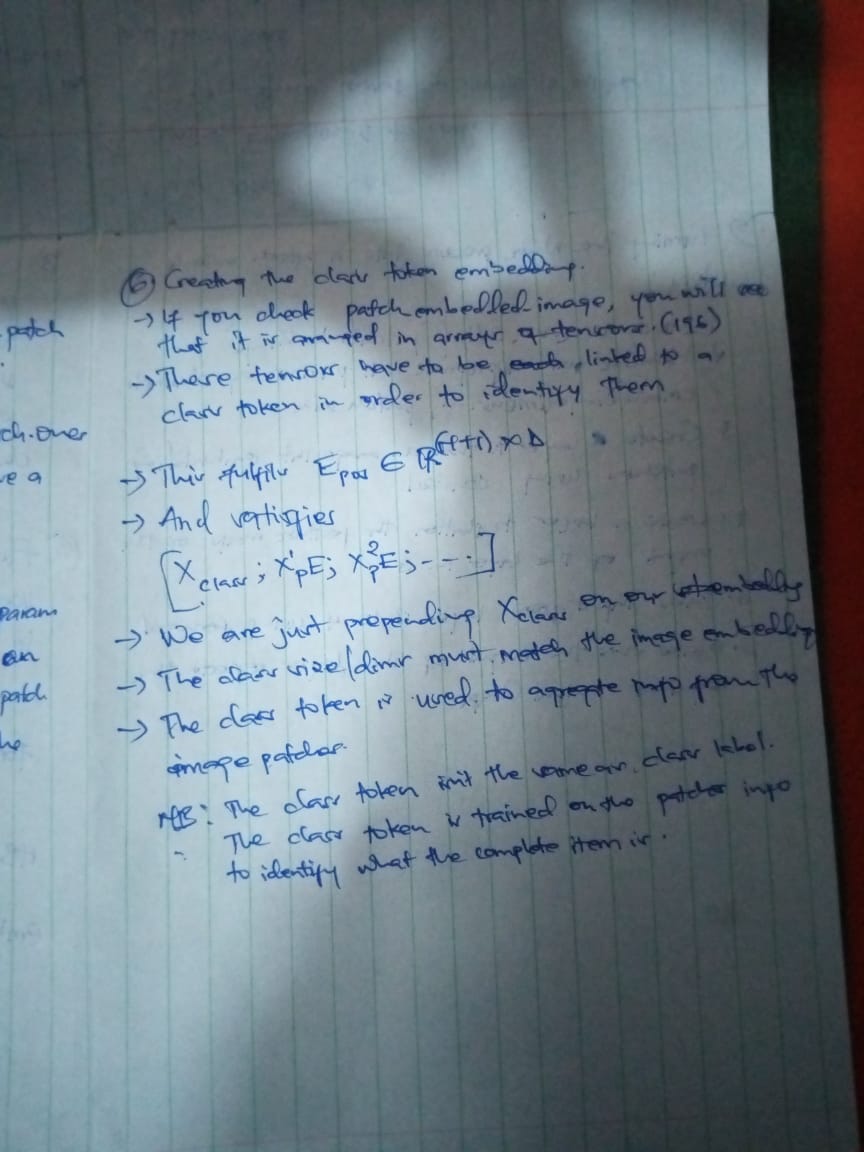 patch
ch. over
ve a
param
an
patch
he
⑥ Creating the class token embedding.
→ If you check patch embedded image, you will see
that it is arranged in arrays of tensors. (196)
→ These tensors have to be each linked to a
class token in order to identify them
→ This fulfils E_pos ∈ ℝ^(N+1) × D
→ And satisfies
[X_class ; X¹_pE; X²_pE; ---.]
→ We are just prepending X_class on our embedding
→ The class size/dims must match the image embedding
→ The class token is used to agregate info from the
image patches.
NB: The class token isn't the same as class label.
The class token is trained on the patches info
to identify what the complete item is.